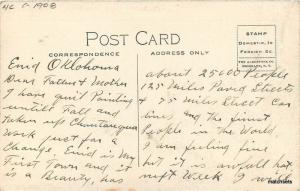 4c C-1908
POST CARD
CORRESPONDENCE
ADDRESS ONLY
STAMP
DOMESTIC, 1c
FOREIGN 2c
THE ALBERTYPE CO.
BROOKLYN, N.Y.
Enid Oklahoma
Dear Father & Mother
I have quit Painting
untill Fall and
taken up Chautauqua
Work just for a
Change. Enid is My
First Town and it
is a Beauty, has
about 25000 People
125 Miles Paved Streets
+ 75 Miles Elect Car
lines and the finest
People in the World,
I am feeling fine
but it is awfull hot
next Week I will